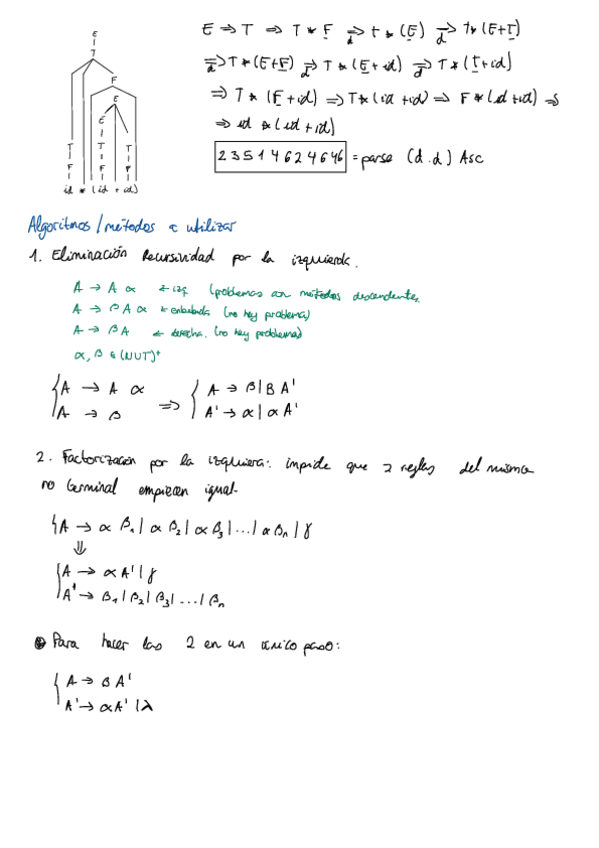 E ⇒ T ⇒ T * F ⇒d t * (E) ⇒d T * (E+T)
⇒d T * (E+F) ⇒d T * (E + id) ⇒d T * (T + id)
⇒ T * (F + id) ⇒ T * (id + id) ⇒ F * (id + id) ⇒
⇒ id * (id + id)
2 3 5 1 4 6 2 4 6 4 6 = parse (d.d) Asc
E
T
F
E
E
T T T
F F F
id * (id + id)
Algoritmos / métodos a utilizar
1. Eliminación Recursividad por la izquierda.
A → A α ← izq (problemas con métodos descendentes.
A → β A α ← embebida (no hay problema)
A → β A ← derecha. (no hay problema)
α, β ∈ (NUT)*
A → A α
A → β
⇒
A → β | B A'
A' → α | α A'
2. Factorización por la izquiera: impide que 2 reglas del mismo
no terminal empiezen igual.
A → α β1 | α β2 | α β3 | ... | α βn | γ
⇓
A → α A' | γ
A' → β1 | β2 | β3 | ... | βn
Para hacer las 2 en un único paso:
A → B A'
A' → α A' | λ